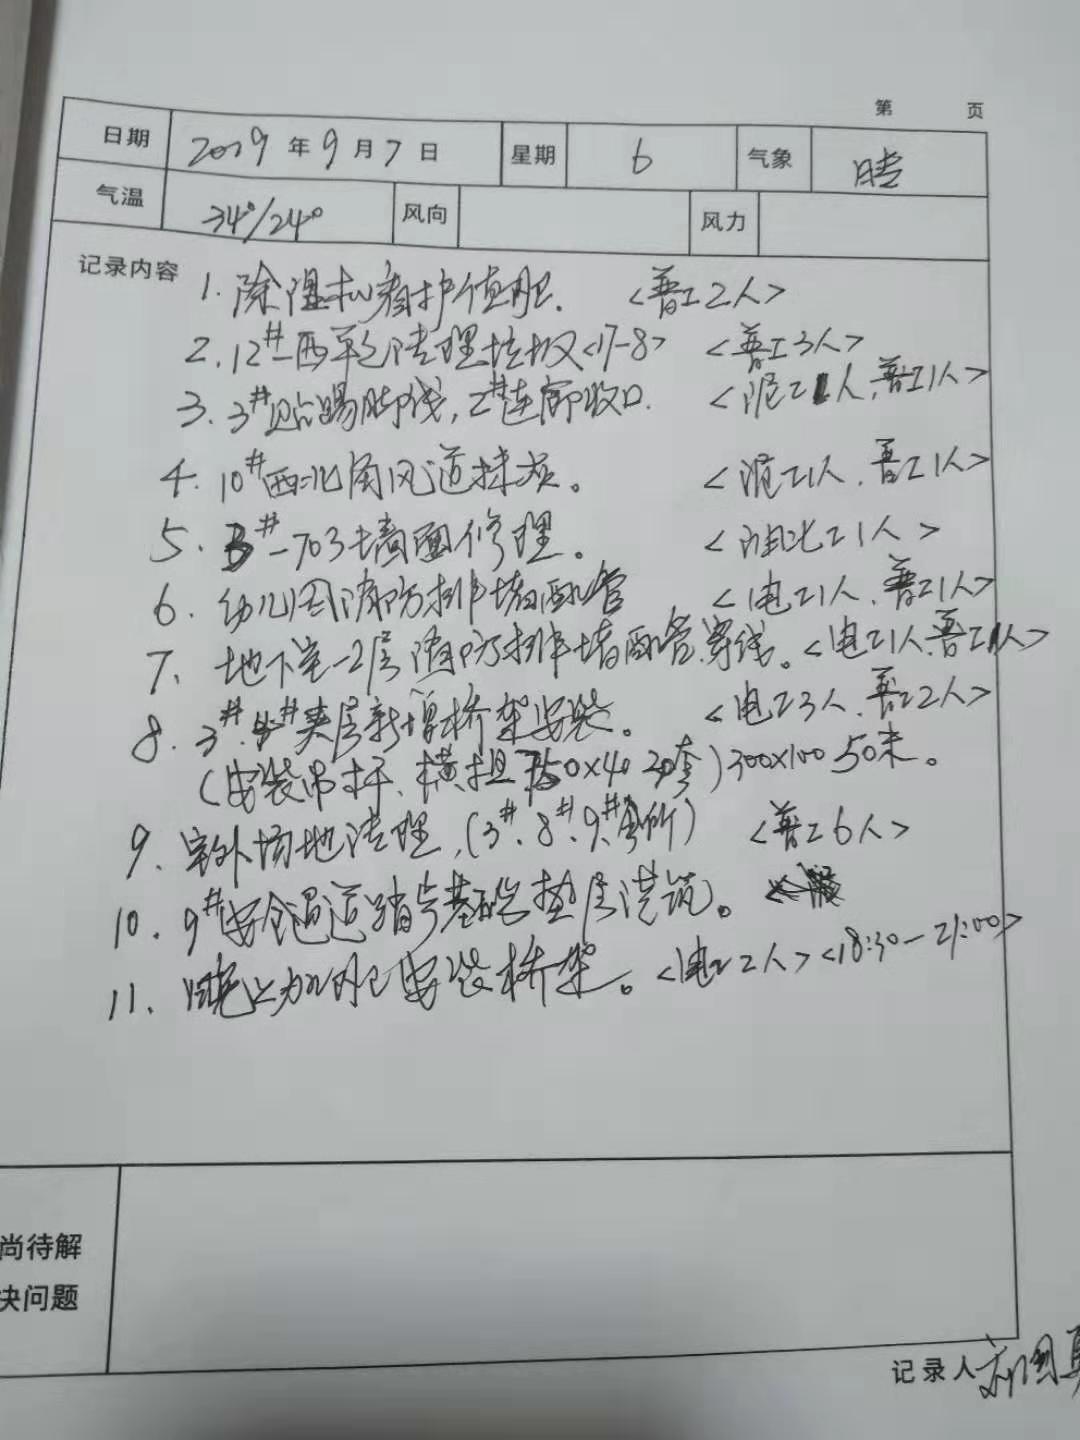 第 页
日期 2019年9月7日 星期 6 气象 晴
气温 34°/24° 风向 风力
记录内容
1. 除湿机看护值班. <普工2人>
2. 12#西单元清理垃圾<17-8> <普工3人>
3. 3#贴踢脚线, 2#连廊收口. <泥工1人、普工1人>
4. 10#西北角风道抹灰。 <泥工1人、普工1人>
5. 3#-703墙面修理。 <油化工1人>
6. 幼儿园消防排堵配管 <电工1人、普工1人>
7. 地下室-2层消防排堵配管穿线。<电工1人、普工1人>
8. 3#、 夹层新增桥架安装。 <电工3人、普工2人>
(安装吊杆、横担 50×40 30套) 300×100 50米。
9. 室外场地清理, (3#、8#、9# ) <普工6人>
10. 9#安全通道踏步基础垫层浇筑。
11. 晚上加班安装桥架。<电工2人><18:30-21:00>
尚待解
决问题
记录人